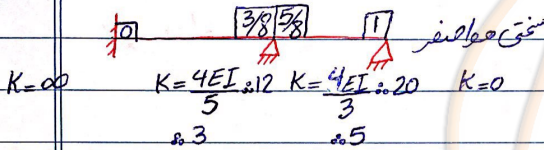 0 3/8 5/8 1
سختی مواضفر
K=∞ K=4EI/5 ∴12 K=4EI/3 ∴20 K=0
∴3 ∴5